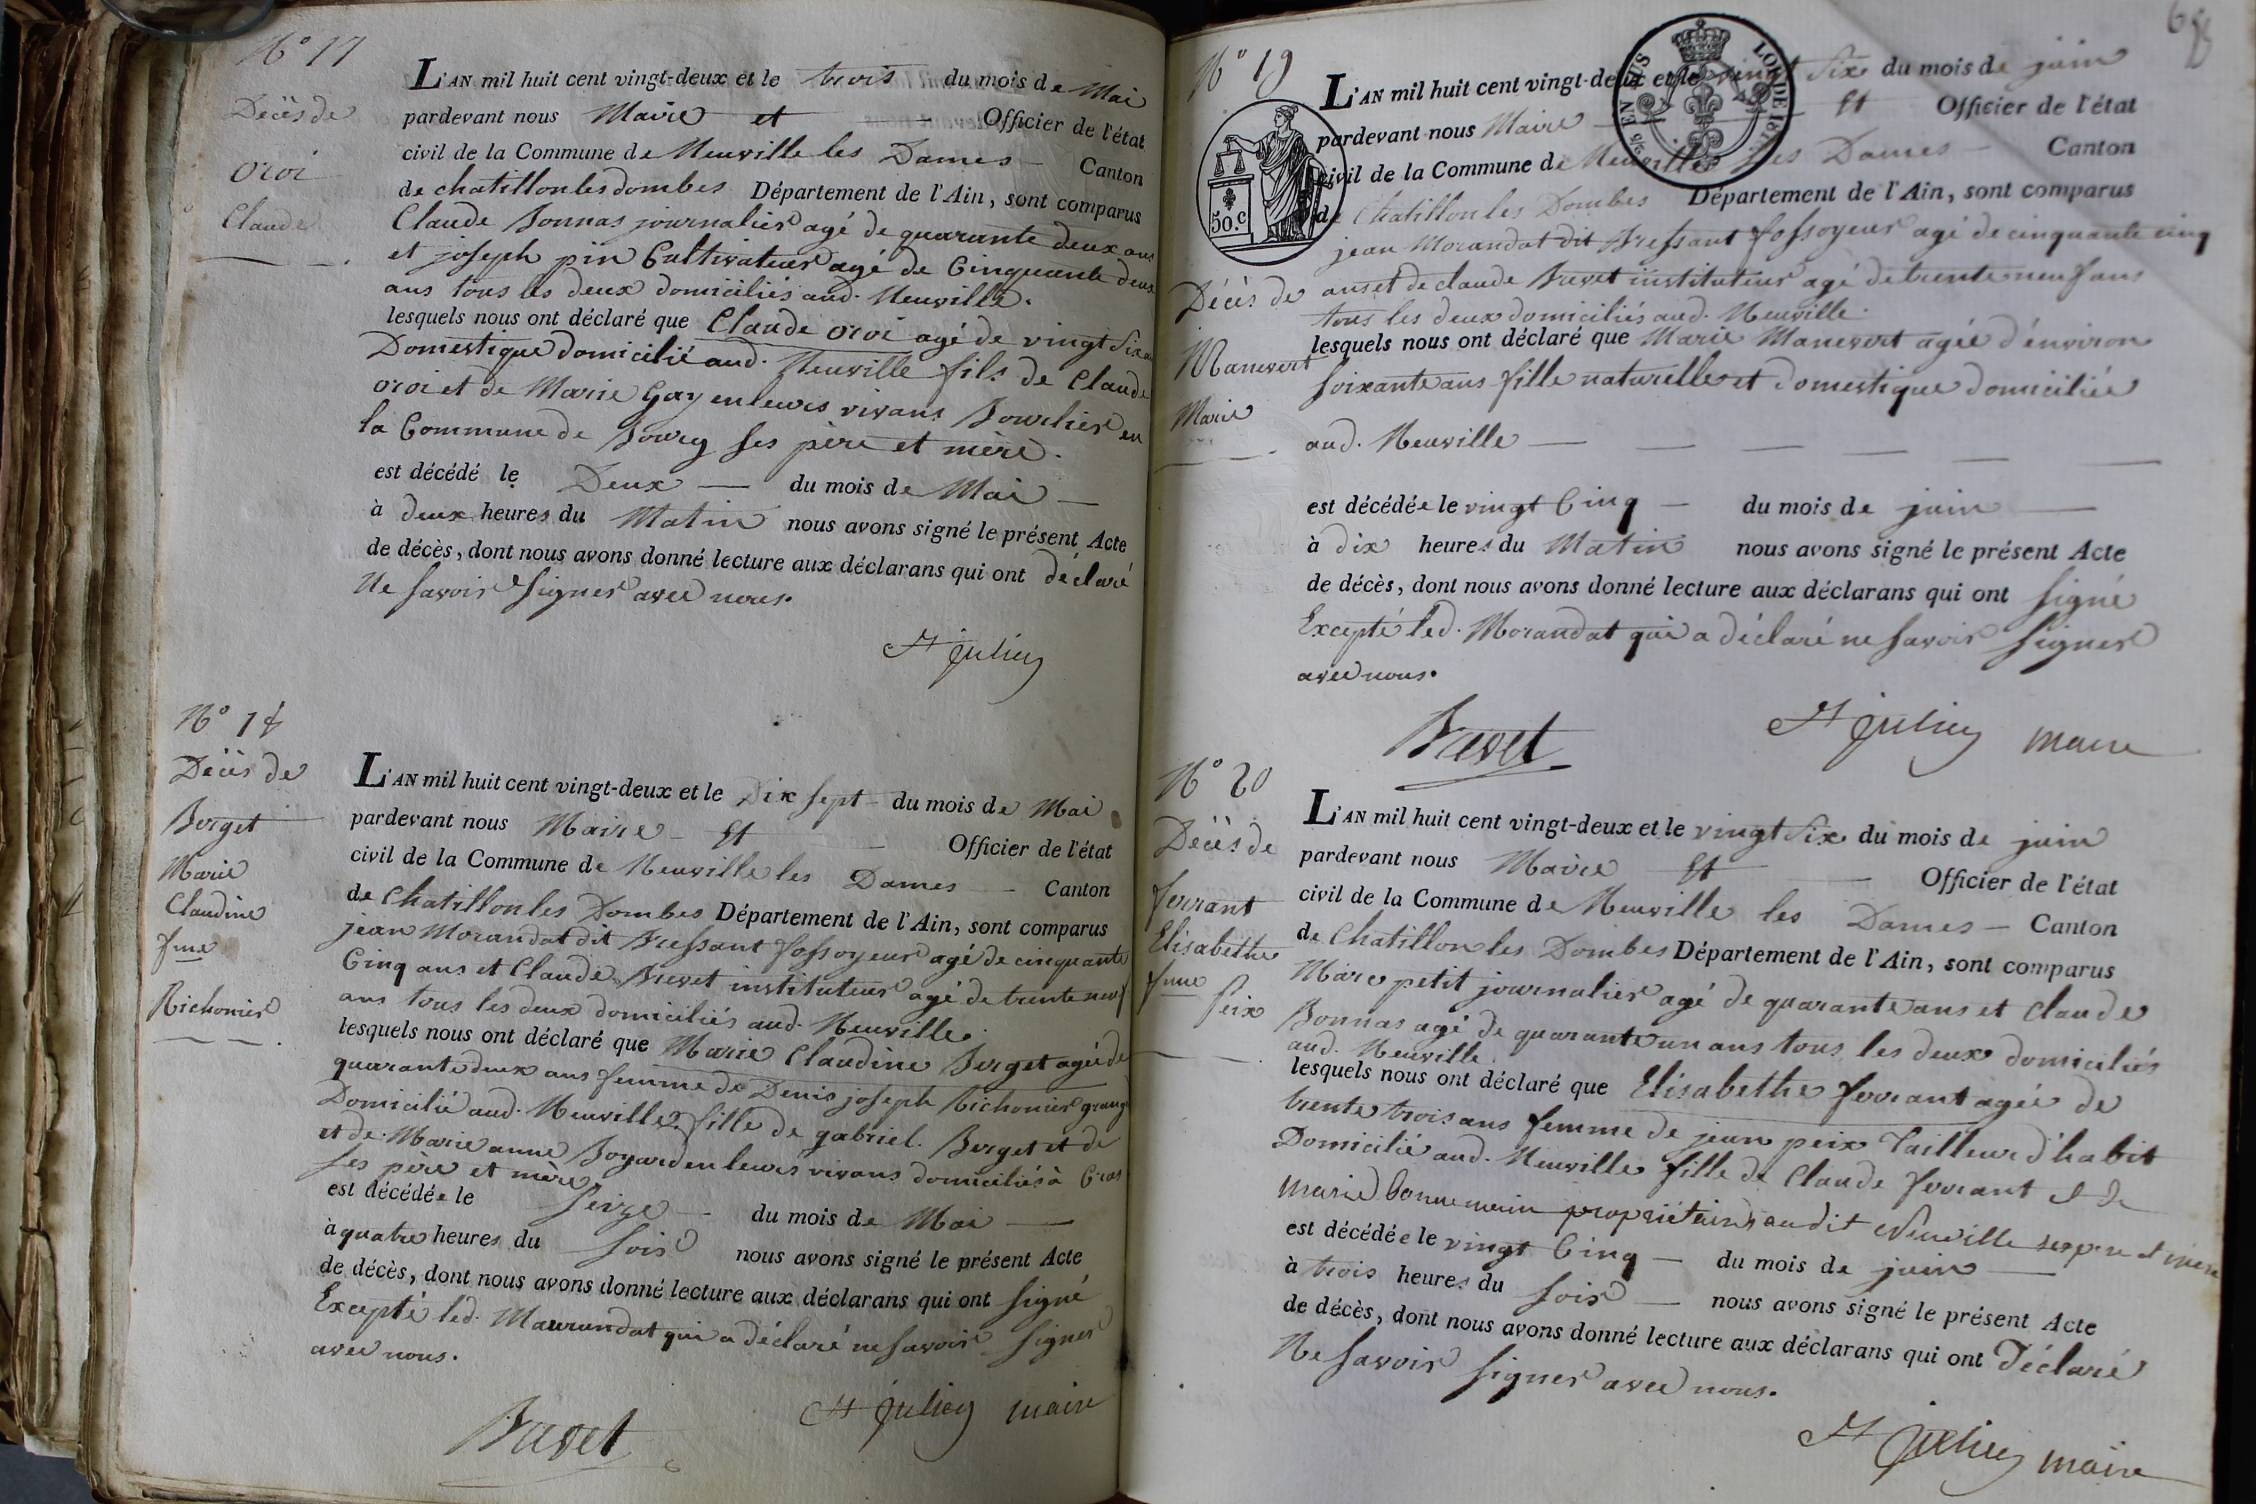 N° 17
Décès de
oroi
Claude
L'AN mil huit cent vingt-deux et le trois du mois de Mai
pardevant nous Maire et Officier de l'état
civil de la Commune de Neuville les Dames Canton
de chatillon les dombes Département de l'Ain, sont comparus
Claude Bonnas journalier agé de quarante deux ans
et joseph pin Cultivateur agé de Cinquante deux
ans tous les deux domiciliés aud. Neuville.
lesquels nous ont déclaré que Claude oroi agé de vingt six
Domestique domicilié aud. Neuville fils de Claude
oroi et de Marie Gay en leurs vivans en
la Commune de Bourg ses père et mère.
est décédé le Deux du mois de Mai
à deux heures du Matin nous avons signé le présent Acte
de décès, dont nous avons donné lecture aux déclarans qui ont déclaré
Ne savoir signer avec nous.
St julien
N° 18
Décès de
Berget
Marie
Claudine
fme
Richonier
L'AN mil huit cent vingt-deux et le Dix sept du mois de Mai
pardevant nous Maire Et Officier de l'état
civil de la Commune de Neuville les Dames Canton
de Chatillon les Dombes Département de l'Ain, sont comparus
jean Morandat dit Bressant fossoyeur agé de cinquante
Cinq ans et Claude Brevet instituteur agé de trente neuf
ans tous les deux domiciliés aud. Neuville.
lesquels nous ont déclaré que Marie Claudine Berget agée de
quarante deux ans femme de Denis joseph Richonier
Domicilié aud. Neuville, fille de gabriel Berget et de
et de Marie anne Boyard en leurs vivans domiciliés à Cras
ses père et mère
est décédée le seize du mois de Mai
à quatre heures du soir nous avons signé le présent Acte
de décès, dont nous avons donné lecture aux déclarans qui ont signé
Excepté led. Maurandat qui a déclaré ne savoir signer
avec nous.
Brevet St julien maire
N° 19
50.c
LOI DE
Décès de
Manevert
Marie
L'AN mil huit cent vingt-deux et le vingt six du mois de juin
pardevant nous Maire Et Officier de l'état
civil de la Commune de Neuville les Dames Canton
de Chatillon les Dombes Département de l'Ain, sont comparus
jean Morandat dit Bressant fossoyeur agé de cinquante cinq
ans et de claude Brevet instituteur agé de trente neuf ans
tous les deux domiciliés aud. Neuville.
lesquels nous ont déclaré que Marie Manevert agée d'environ
soixante ans fille naturelle et domestique domiciliée
aud. Neuville
est décédée le vingt Cinq du mois de juin
à dix heures du Matin nous avons signé le présent Acte
de décès, dont nous avons donné lecture aux déclarans qui ont signé
Excepté led. Morandat qui a déclaré ne savoir signer
avec nous.
Brevet St julien maire
N° 20
Décès de
ferrant
Elisabethe
fme
peix
L'AN mil huit cent vingt-deux et le vingt six du mois de juin
pardevant nous Maire Et Officier de l'état
civil de la Commune de Neuville les Dames Canton
de Chatillon les Dombes Département de l'Ain, sont comparus
Marc petit journalier agé de quarante ans et Claude
Bonnas agé de quarante un ans tous les deux domiciliés
aud. Neuville.
lesquels nous ont déclaré que Elisabethe ferrant agée de
trente trois ans femme de jean peix Tailleur d'habit
Domicilié aud. Neuville fille de Claude ferrant et de
marie bonnemain propriétaires audit Neuville ses pere et mere
est décédée le vingt Cinq du mois de juin
à trois heures du soir nous avons signé le présent Acte
de décès, dont nous avons donné lecture aux déclarans qui ont Déclaré
Ne savoir signer avec nous.
St julien maire